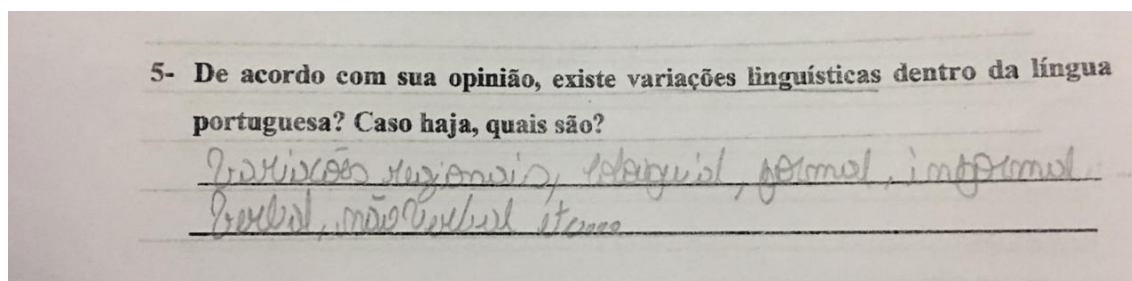 5- De acordo com sua opinião, existe variações linguísticas dentro da língua
portuguesa? Caso haja, quais são?
Variações regionais, coloquial, formal, informal
Verbal, não verbal etc...